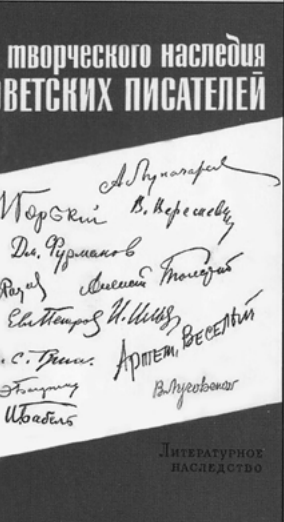 творческого наследия
ОВЕТСКИХ ПИСАТЕЛЕЙ
А Луначарск
М Горький
В. Вересаев
Дм. Фурманов
Алексей Толстой
Евг Петров И. Ильф
А. С. Грин.
АРТЕМ ВЕСЕЛЫЙ
Э Багрицкий
В Луговской
И Бабель
ЛИТЕРАТУРНОЕ
НАСЛЕДСТВО